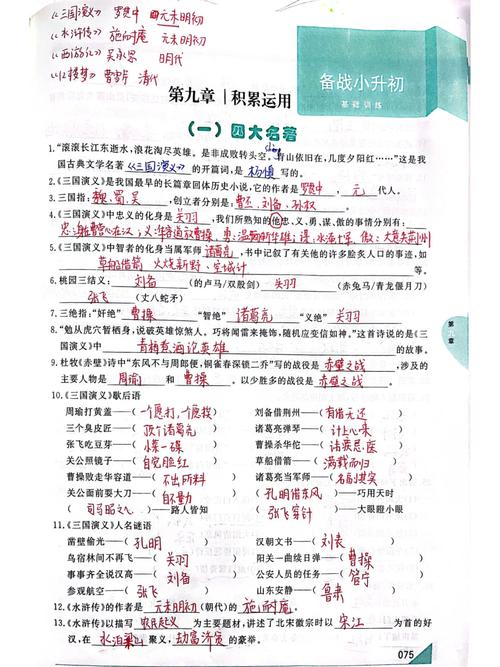 《三国演义》 罗贯中 元末明初
《水浒传》 施耐庵 元末明初
《西游记》 吴承恩 明代
《红楼梦》 曹雪芹 清代
备战小升初
基础训练
第九章 | 积累运用
(一) 四大名著
1.“滚滚长江东逝水,浪花淘尽英雄。是非成败转头空。青山依旧在,几度夕阳红……”这是我
国古典文学名著《三国演义》的开篇词,是 杨慎 写的。
2.《三国演义》是我国最早的长篇章回体历史小说,它的作者是 罗贯中 , 元 代人。
3.三国指: 魏、蜀、吴 ,创立者分别是: 曹丕、刘备、孙权 。
4.《三国演义》中忠义的化身是 关羽 ,我们所熟知的他忠、义、勇、谋、傲的事情分别有:
忠:身在曹营心在汉;义:华容道放曹操,勇:温酒斩华雄;谋:水淹七军,傲:大意失荆州
5.《三国演义》中智者的化身当属军师 诸葛亮 ,书中记叙了有关他的许多脍炙人口的事迹,如
草船借箭、火烧新野、空城计 等。
6.桃园三结义: 刘备 (的卢马/双股剑) 关羽 (赤兔马/青龙偃月刀)
张飞 (丈八蛇矛)
7.三绝指:“奸绝” 曹操 “智绝” 诸葛亮 “义绝” 关羽
8.“勉从虎穴暂栖身,说破英雄惊煞人。巧将闻雷来掩饰,随机应变信如神。”这首诗说的是《三
国演义》中 青梅煮酒论英雄 的故事。
9.杜牧《赤壁》诗中“东风不与周郎便,铜雀春深锁二乔”写的战役是 赤壁之战 ,涉及的
主要人物是 周瑜 和 曹操 。以少胜多的战役是 赤壁之战 。
10.《三国演义》歇后语
周瑜打黄盖——(一个愿打,一个愿挨) 刘备借荆州——(有借无还)
三个臭皮匠——(顶个诸葛亮) 诸葛亮弹琴——(计上心来)
张飞吃豆芽——(小菜一碟) 曹操杀华佗——(讳疾忌医)
关公照镜子——(自觉脸红) 草船借箭——(满载而归)
曹操败走华容道——(不出所料) 诸葛亮当军师——(名副其实)
关公面前耍大刀——(自不量力) (孔明借东风)——巧用天时
(司马昭之心)——路人皆知 (张飞穿针)——大眼瞪小眼
11.《三国演义》人名谜语
凿壁偷光——( 孔明 ) 汉朝文书——( 刘表 )
鸟宿林间不再飞——( 关羽 ) 阳关一曲续日弹——( 曹操 )
事事齐全说汉高——( 刘备 ) 公安人员的任务——( 管宁 )
参观航空——( 张飞 ) 山东安静——( 鲁肃 )
12.《水浒传》的作者是 元末明初 (朝代)的 施耐庵 。
13.《水浒传》以描写 农民起义 为主要题材,讲述了北宋徽宗时以 宋江 为首的好
汉,在 水泊梁山 聚义, 劫富济贫 的豪举。
第九章
075